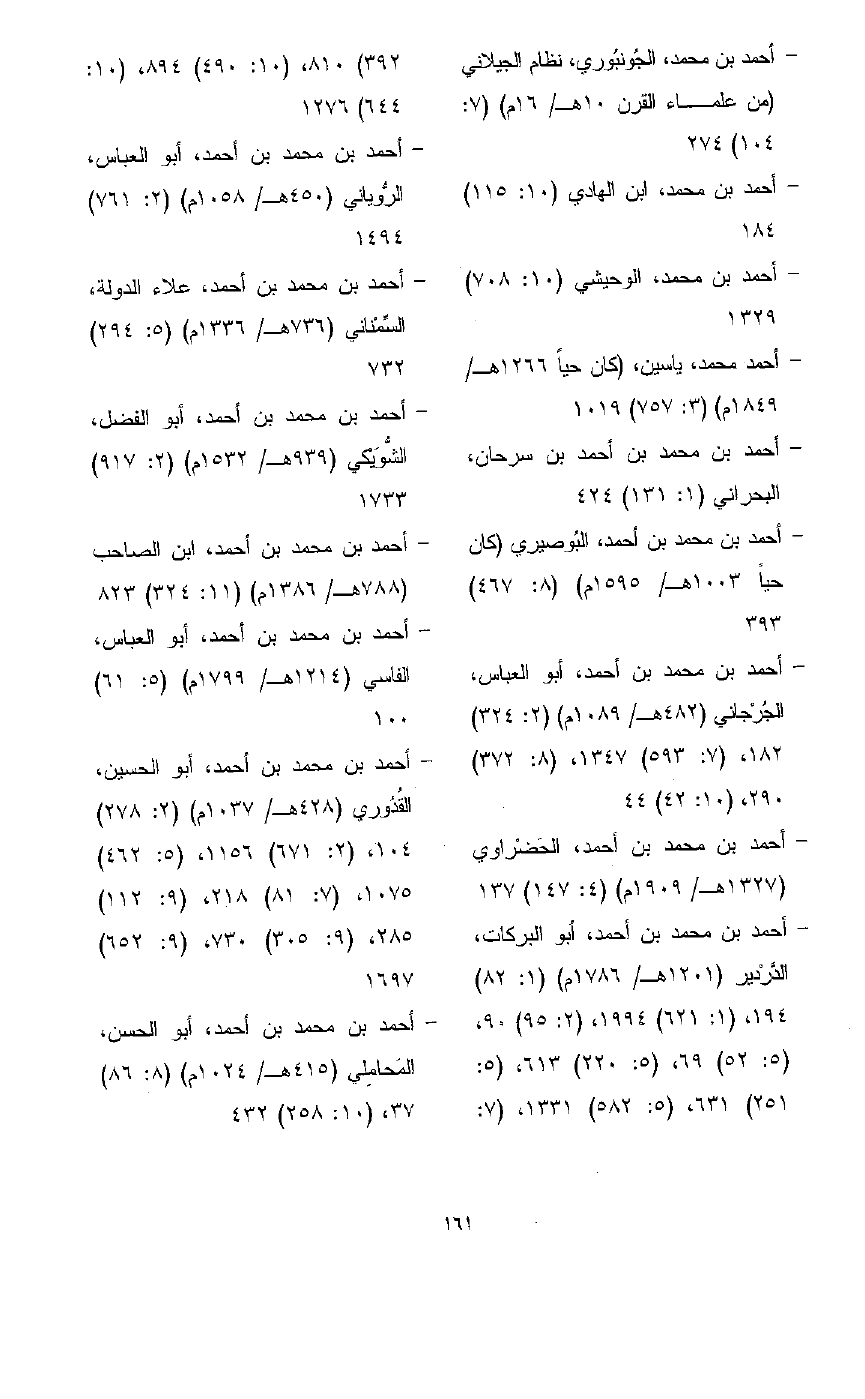 – أحمد بن محمد، الجُونبُوري، نظام الجيلاني
(من علمـــاء القرن ١٠هــ/ ١٦م) (٧:
١٠٤) ٢٧٤
– أحمد بن محمد، ابن الهادي (١٠: ١١٥)
١٨٤
– أحمد بن محمد، الوحيشي (١٠: ٧٠٨)
١٣٢٩
– أحمد محمد، ياسين، (كان حياً ١٢٦٦هــ/
١٨٤٩م) (٣: ٧٥٧) ١٠١٩
– أحمد بن محمد بن أحمد بن سرحان،
البحراني (١: ١٣١) ٤٢٤
– أحمد بن محمد بن أحمد، البُوصيري (كان
حياً ١٠٠٣هــ/ ١٥٩٥م) (٨: ٤٦٧)
٣٩٣
– أحمد بن محمد بن أحمد، أبو العباس،
الجُرْجاني (٤٨٢هــ/ ١٠٨٩م) (٢: ٣٢٤)
١٨٢، (٧: ٥٩٣) ١٣٤٧، (٨: ٣٧٢)
٢٩٠، (١٠: ٤٢) ٤٤
– أحمد بن محمد بن أحمد، الحَضْراوي
(١٣٢٧هــ/ ١٩٠٩م) (٤: ١٤٧) ١٣٧
– أحمد بن محمد بن أحمد، أبو البركات،
الدَّرْدير (١٢٠١هــ/ ١٧٨٦م) (١: ٨٢)
١٩٤، (١: ٦٢١) ١٩٩٤، (٢: ٩٥) ٩٠،
(٥: ٥٢) ٦٩، (٥: ٢٢٠) ٦١٣، (٥:
٢٥١) ٦٣١، (٥: ٥٨٢) ١٣٣١، (٧:
٣٩٢) ٨١٠، (١٠: ٤٩٠) ٨٩٤، (١٠:
٦٤٤) ١٢٧٦
– أحمد بن محمد بن أحمد، أبو العباس،
الرُّوياني (٤٥٠هــ/ ١٠٥٨م) (٢: ٧٦١)
١٤٩٤
– أحمد بن محمد بن أحمد، علاء الدولة،
السِّمْناني (٧٣٦هــ/ ١٣٣٦م) (٥: ٢٩٤)
٧٣٢
– أحمد بن محمد بن أحمد، أبو الفضل،
الشُّوَيْكي (٩٣٩هــ/ ١٥٣٢م) (٢: ٩١٧)
١٧٣٣
– أحمد بن محمد بن أحمد، ابن الصاحب
(٧٨٨هــ/ ١٣٨٦م) (١١: ٣٢٤) ٨٢٣
– أحمد بن محمد بن أحمد، أبو العباس،
الفاسي (١٢١٤هــ/ ١٧٩٩م) (٥: ٦١)
١٠٠
– أحمد بن محمد بن أحمد، أبو الحسين،
القُدُوري (٤٢٨هــ/ ١٠٣٧م) (٢: ٢٧٨)
١٠٤، (٢: ٦٧١) ١١٥٦، (٥: ٤٦٢)
١٠٧٥، (٧: ٨١) ٢١٨، (٩: ١١٢)
٢٨٥، (٩: ٣٠٥) ٧٣٠، (٩: ٦٥٢)
١٦٩٧
– أحمد بن محمد بن أحمد، أبو الحسن،
المَحاملي (٤١٥هــ/ ١٠٢٤م) (٨: ٨٦)
٣٧، (١٠: ٢٥٨) ٤٣٢
١٦١